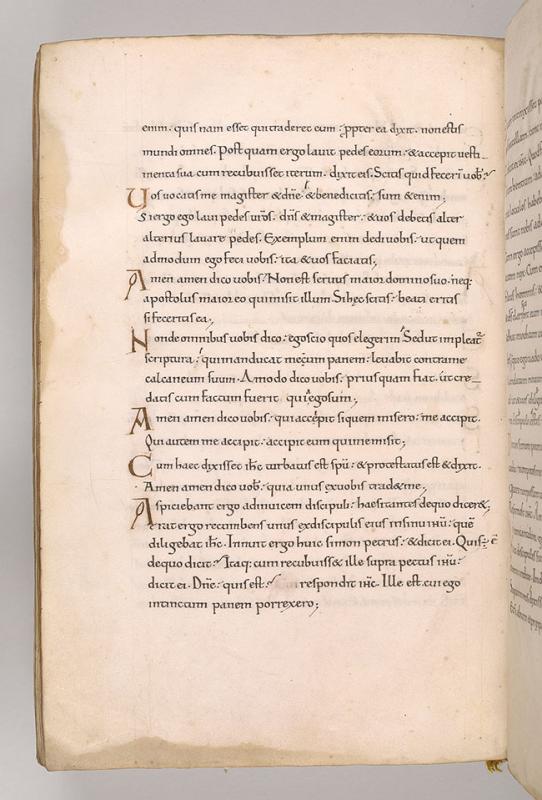 enim · quis nam esset qui traderet eum · ppter ea dixit · non estis
mundi omnes. Post quam ergo lauit pedes eorum · & accepit uesti_
menta sua cum recubuisset iterum · dixit eis. Scitis quid fecerī uob̄
Uos uocatis me magister & dn̄e · & benedicitis · sum & enim;
Si ergo ego laui pedes ur̄os · dn̄s & magister · & uos debetis alter
alterius lauare pedes. Exemplum enim dedi uobis · ut quem
admodum ego feci uobis · ita & uos faciatis;
Amen amen dico uobis · Non est seruus maior domino suo · neq:
apostolus maior eo qui misit illum. Si hęc scitis · beati eritis
si feceritis ea;
Non de omnibus uobis dico · ego scio quos elegerim Sed ut impleat̄
scriptura · qui manducat mecum panem · leuabit contra me
calcaneum suum. Amodo dico uobis · prius quam fiat · ut cre_
datis cum factum fuerit quia ego sum;
Amen amen dico uobis · qui accępit si quem misero · me accipit.
Qui autem me accipit · accipit eum qui me misit;
Cum haec dixisset ihc turbatus est spū · & protestatus est & dixit.
Amen amen dico uob̄ · quia unus ex uobis trad& me;
Aspiciebant ergo ad inuicem discipuli · haesitantes de quo dicer&;
erat ergo recumbens unus ex discipulis eius in sinu ihū · quē
diligebat ihc. Innuit ergo huic simon petrus · & dicit ei. Quis ē
de quo dicit · Itaq: cum recubuiss& ille supra pectus ihū ·
dicit ei. Dn̄e · quis est · respondit ihc. Ille est cui ego
intinctum panem porrexero;